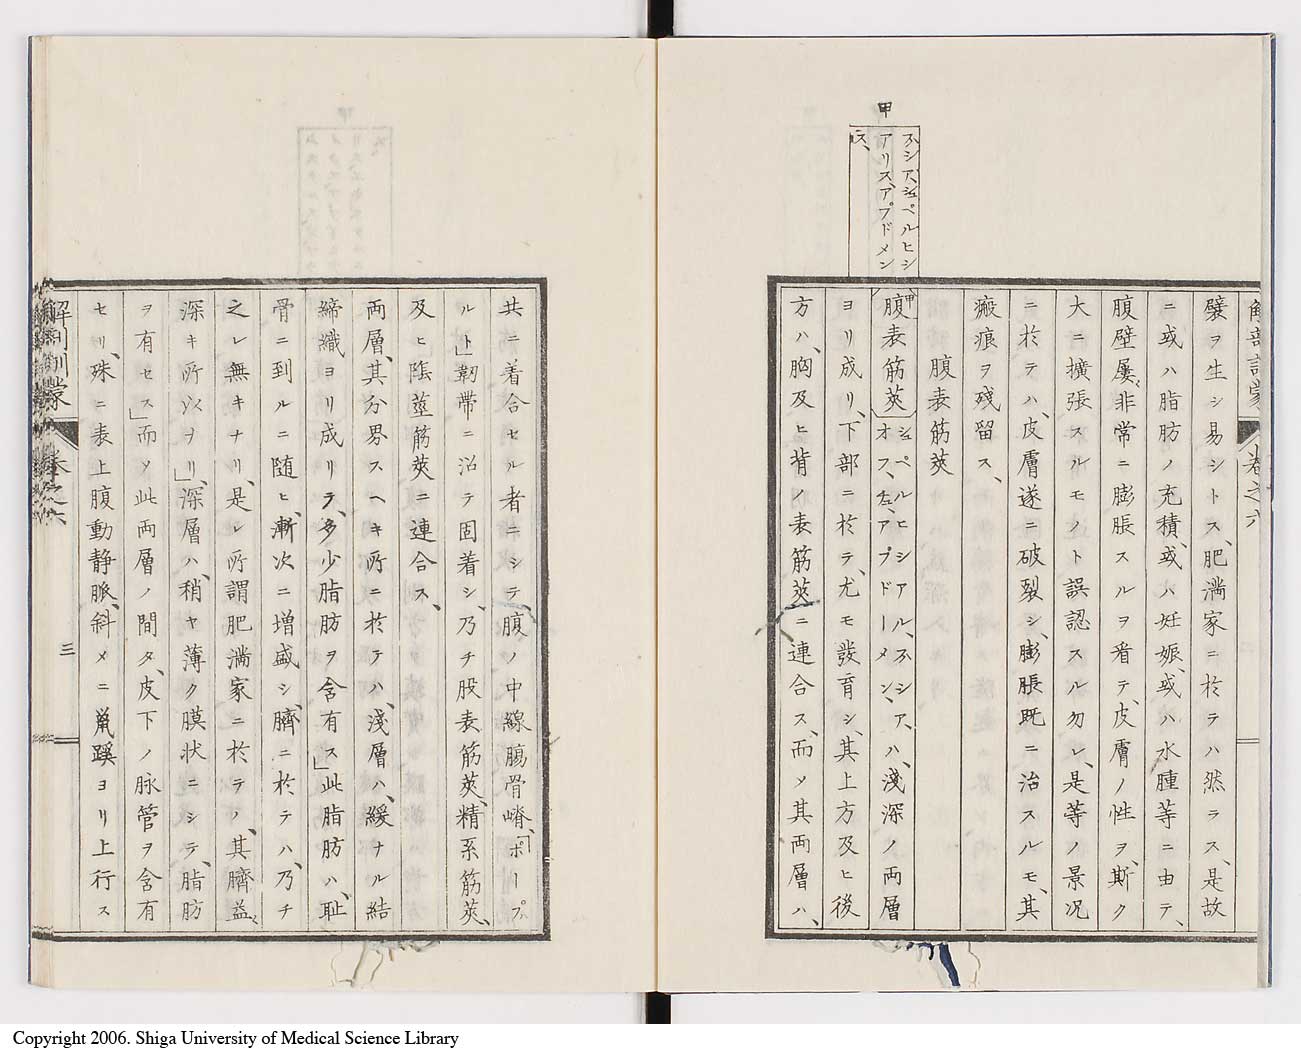 甲
ハシア、シュペルヒシ
アリス、アブドメン
ス、
解剖訓蒙 卷之六
襞ヲ生シ易シトス、肥満家ニ於テハ然ラス、是故
ニ或ハ脂肪ノ充積、或ハ妊娠、或ハ水腫等ニ由テ、
腹壁屡、非常ニ膨脹スルヲ看テ、皮膚ノ性ヲ、斯ク
大ニ擴張スルモノト誤認スル勿レ、是等ノ景况
ニ於テハ、皮膚遂ニ破裂シ、膨脹既ニ治スルモ、其
瘢痕ヲ殘留ス、
腹表筋莢
甲
腹表筋莢「シュペルヒシアル、ハシア、
オフ、左、アブドーメン」ハ、淺深ノ両層
ヨリ成リ、下部ニ於テ、尤モ發育シ、其上方及ヒ後
方ハ、胸及ヒ背ノ表筋莢ニ連合ス、而メ其両層ハ、
共ニ着合セル者ニシテ、腹ノ中線腸骨嵴、「ポープ
ルト」靭帶ニ沿テ固着シ、乃チ股表筋莢、精系筋莢、
及ヒ陰莖筋莢ニ連合ス、
両層、其分界スヘキ所ニ於テハ、淺層ハ、緩ナル結
締織ヨリ成リテ、多少脂肪ヲ含有ス」此脂肪ハ、耻
骨ニ到ルニ随ヒ、漸次ニ増盛シ、臍ニ於テハ、乃チ
之レ無キナリ、是レ所謂肥満家ニ於テノ、其臍益、
深キ所以ヲリ」深層ハ、稍ヤ薄ク膜状ニシテ、脂肪
ヲ有セス」而メ此両層ノ間タ、皮下ノ脉管ヲ含有
セリ、殊ニ表上腹動静脈、斜メニ鼠蹊ヨリ上行ス
解剖訓蒙 卷之六
三
Copyright 2006. Shiga University of Medical Science Library